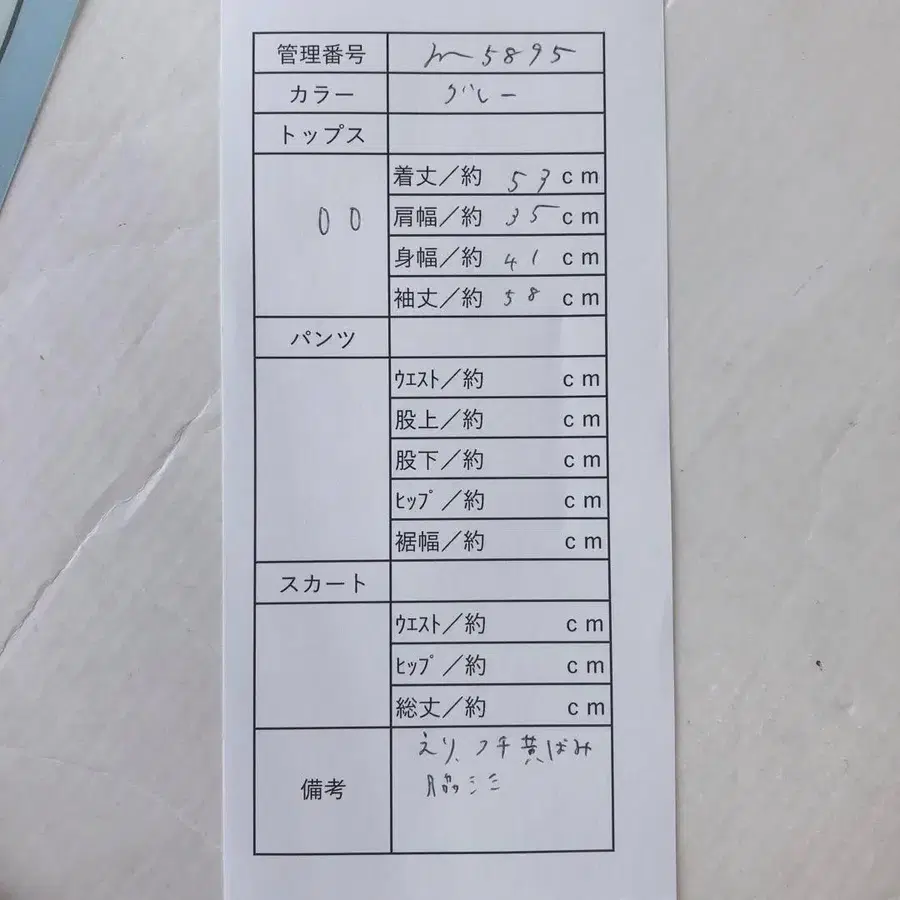 管理番号 m5895
カラー グレー
トップス
00
着丈／約 53 cm
肩幅／約 35 cm
身幅／約 41 cm
袖丈／約 58 cm
パンツ
ｳｴｽﾄ／約 cm
股上／約 cm
股下／約 cm
ﾋｯﾌﾟ／約 cm
裾幅／約 cm
スカート
ｳｴｽﾄ／約 cm
ﾋｯﾌﾟ／約 cm
総丈／約 cm
備考
えり、フチ黄ばみ
脇シミ